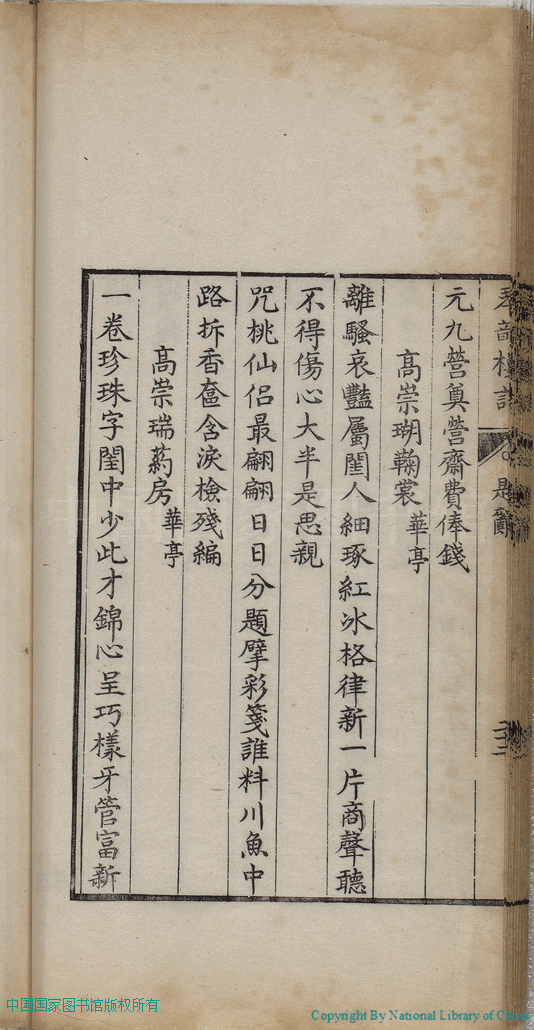 元九營奠營齋費俸錢
高崇瑚鞠裳華亭
離騷哀豔屬閨人細琢紅冰格律新一片商聲聽
不得傷心大半是思親
咒桃仙侶最翩翩日日分題擘彩箋誰料川魚中
路拆香奩含淚檢殘編
高崇瑞葯房華亭
一卷珍珠字閨中少此才錦心呈巧樣牙管富新
中国国家图书馆版权所有
Copyright By National Library of China